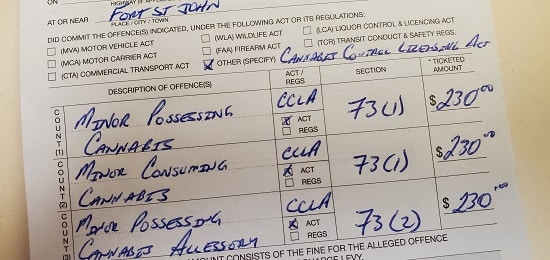 ON HIGHWAY
AT OR NEAR FORT ST JOHN
PLACE / CITY / TOWN
DID COMMIT THE OFFENCE(S) INDICATED, UNDER THE FOLLOWING ACT OR ITS REGULATIONS:
(MVA) MOTOR VEHICLE ACT (WLA) WILDLIFE ACT (LCA) LIQUOR CONTROL & LICENCING ACT
(MCA) MOTOR CARRIER ACT (FAA) FIREARM ACT (TCR) TRANSIT CONDUCT & SAFETY REGS.
(CTA) COMMERCIAL TRANSPORT ACT X OTHER (SPECIFY) CANNABIS CONTROL LICENSING ACT
DESCRIPTION OF OFFENCE(S) ACT / REGS SECTION * TICKETED AMOUNT
COUNT (1) MINOR POSSESSING CANNABIS CCLA X ACT REGS 73(1) $230.00
COUNT (2) MINOR CONSUMING CANNABIS CCLA X ACT REGS 73(1) $230.00
COUNT (3) MINOR POSSESSING CANNABIS ACCESSORY CCLA X ACT REGS 73(2) $230.00
AMOUNT CONSISTS OF THE FINE FOR THE ALLEGED OFFENCE
CHARGE LEVY.